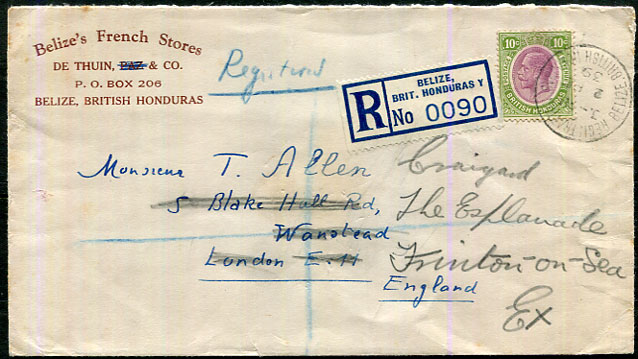 Belize's French Stores
DE THUIN, PAZ & CO.
P. O. BOX 206
BELIZE, BRITISH HONDURAS
Registered
R
BELIZE,
BRIT. HONDURAS Y
No 0090
10c 10c
BRITISH HONDURAS
Monsieur T. Allen
5 Blake Hall Rd,
Wanstead
London E.11
England
Craigard
The Esplanade
Frinton-on-Sea
Ex